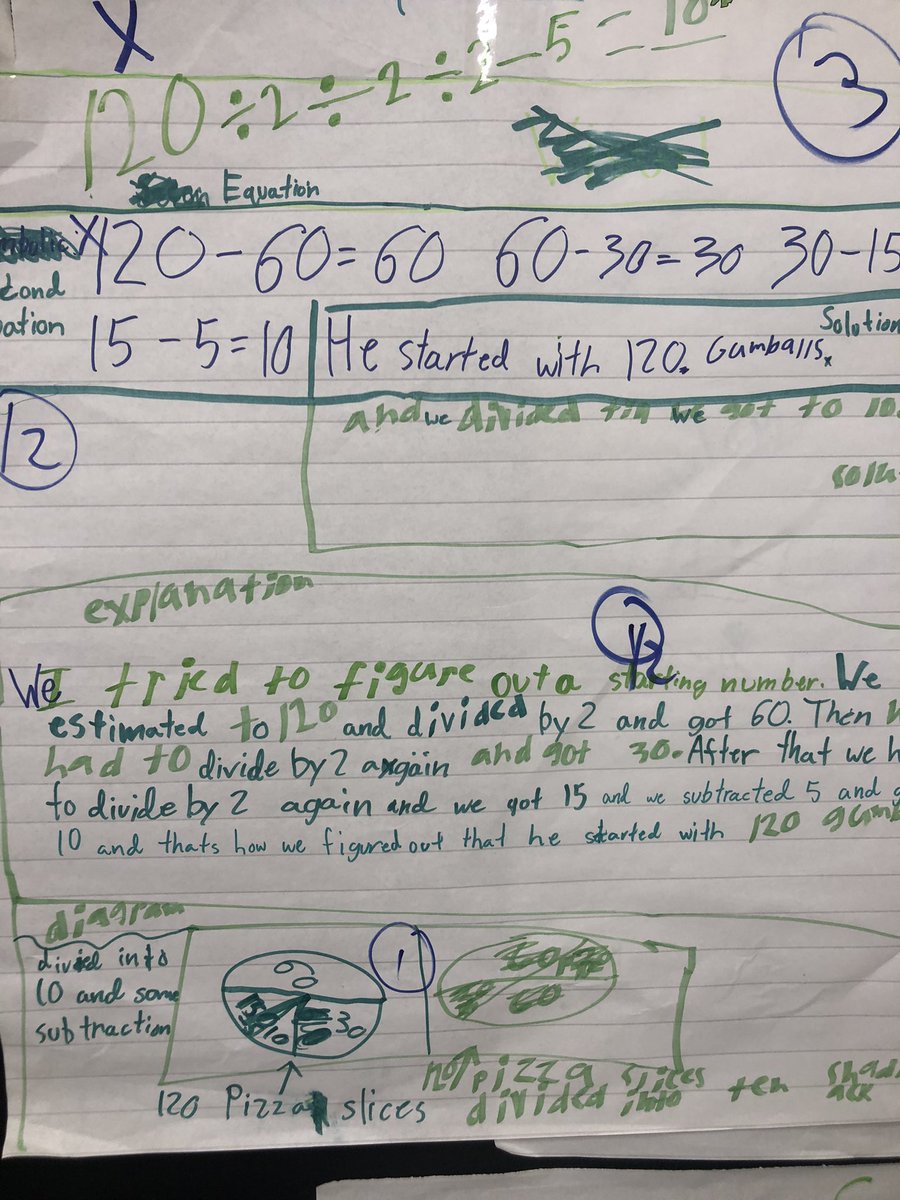 X
120÷2÷2÷2-5=10
3
Equation
X120-60=60 60-30=30 30-15
cond
ation
15-5=10
Solution
He started with 120. Gumballs.
and we divided till we got to 10.
12
solu
explanation
1/2
We tried to figure out a starting number. We
estimated to 120 and divided by 2 and got 60. Then
had to divide by 2 again and got 30. After that we h
to divide by 2 again and we got 15 and we subtracted 5 and g
10 and thats how we figured out that he started with 120 gumb
diagram
divied into
10 and some
subtraction
1
60
15
10
30
60
120 Pizza slices
pizza slices
divided into ten